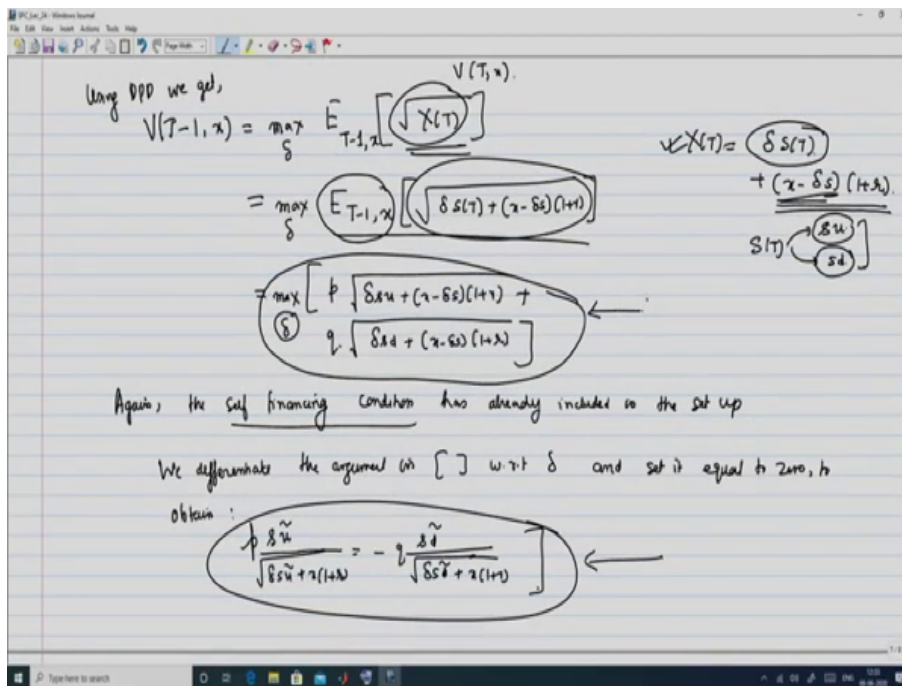 SPC_Lec_24 - Windows Journal
File Edit View Insert Actions Tools Help
Page Width
V(T,x).
Using DPP we get,
V(T-1,x) = max_δ E_{T-1,x} [√X(T)]
X(T) = δ S(T)
+ (x-δs)(1+r).
= max_δ E_{T-1,x} [√(δ S(T) + (x-δs)(1+r))]
S(T) su
sd ]
= max_δ [ p √(δsu + (x-δs)(1+r)) +
q √(δsd + (x-δs)(1+r)) ]
Again, the self financing condition has already included in the set up
We differentiate the argument in [ ] w.r.t δ and set it equal to zero, to
obtain :
p sũ / √(δsũ + x(1+r)) = - q sd̃ / √(δsd̃ + x(1+r)) ]
Type here to search
ENG